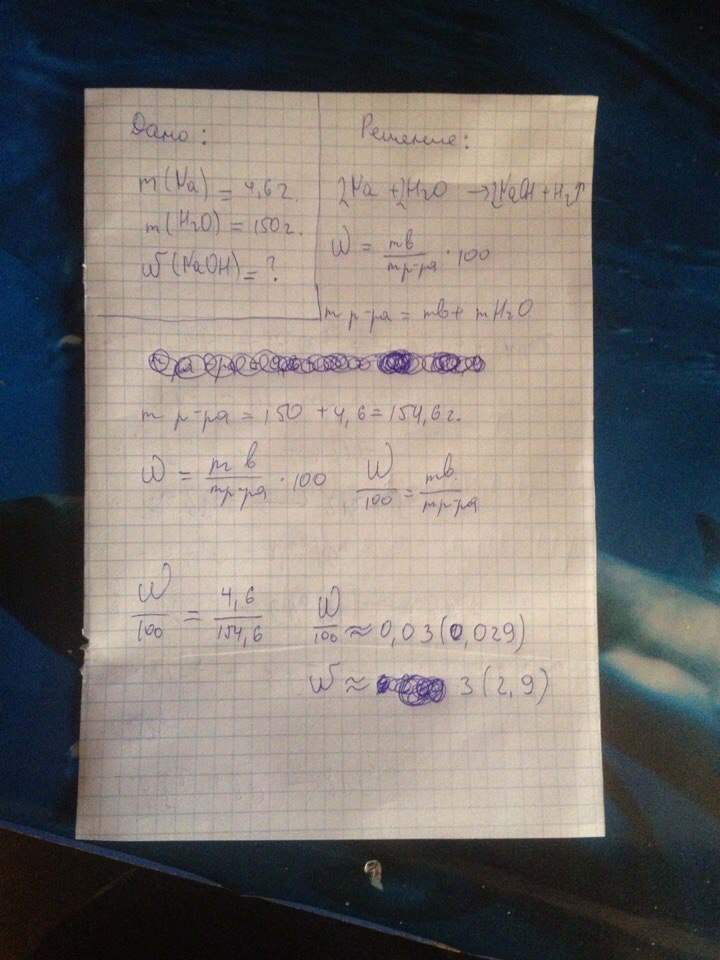 Дано:
m(Na) = 4,6 г
m(H2O) = 150 г.
ω(NaOH) = ?
Решение:
2Na + 2H2O → 2NaOH + H2↑
W = mв/mр-ра · 100
m р-ра = mв + mH2O
m р-ра = 150 + 4,6 = 154,6 г.
W = m в/mр-ра · 100 W/100 = mв./mр-ра
W/100 = 4,6/154,6 W/100 ≈ 0,03 (0,029)
W ≈ 3 (2,9)